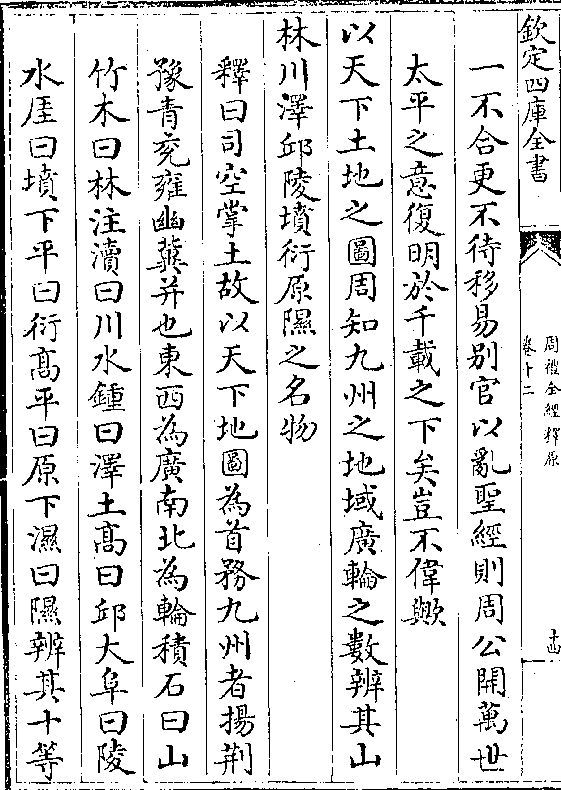 欽定四庫全書
周禮全經釋原
卷十二
十四
一不合更不待移易別官以亂聖經則周公開萬世
太平之意復明於千載之下矣豈不偉歟
以天下土地之圖周知九州之地域廣輪之數辨其山
林川澤邱陵墳衍原隰之名物
釋曰司空掌土故以天下地圖為首務九州者揚荆
豫青兖雍幽冀并也東西為廣南北為輪積石曰山
竹木曰林注瀆曰川水鍾曰澤土髙曰邱大阜曰陵
水厓曰墳下平曰衍髙平曰原下濕曰隰辨其十等